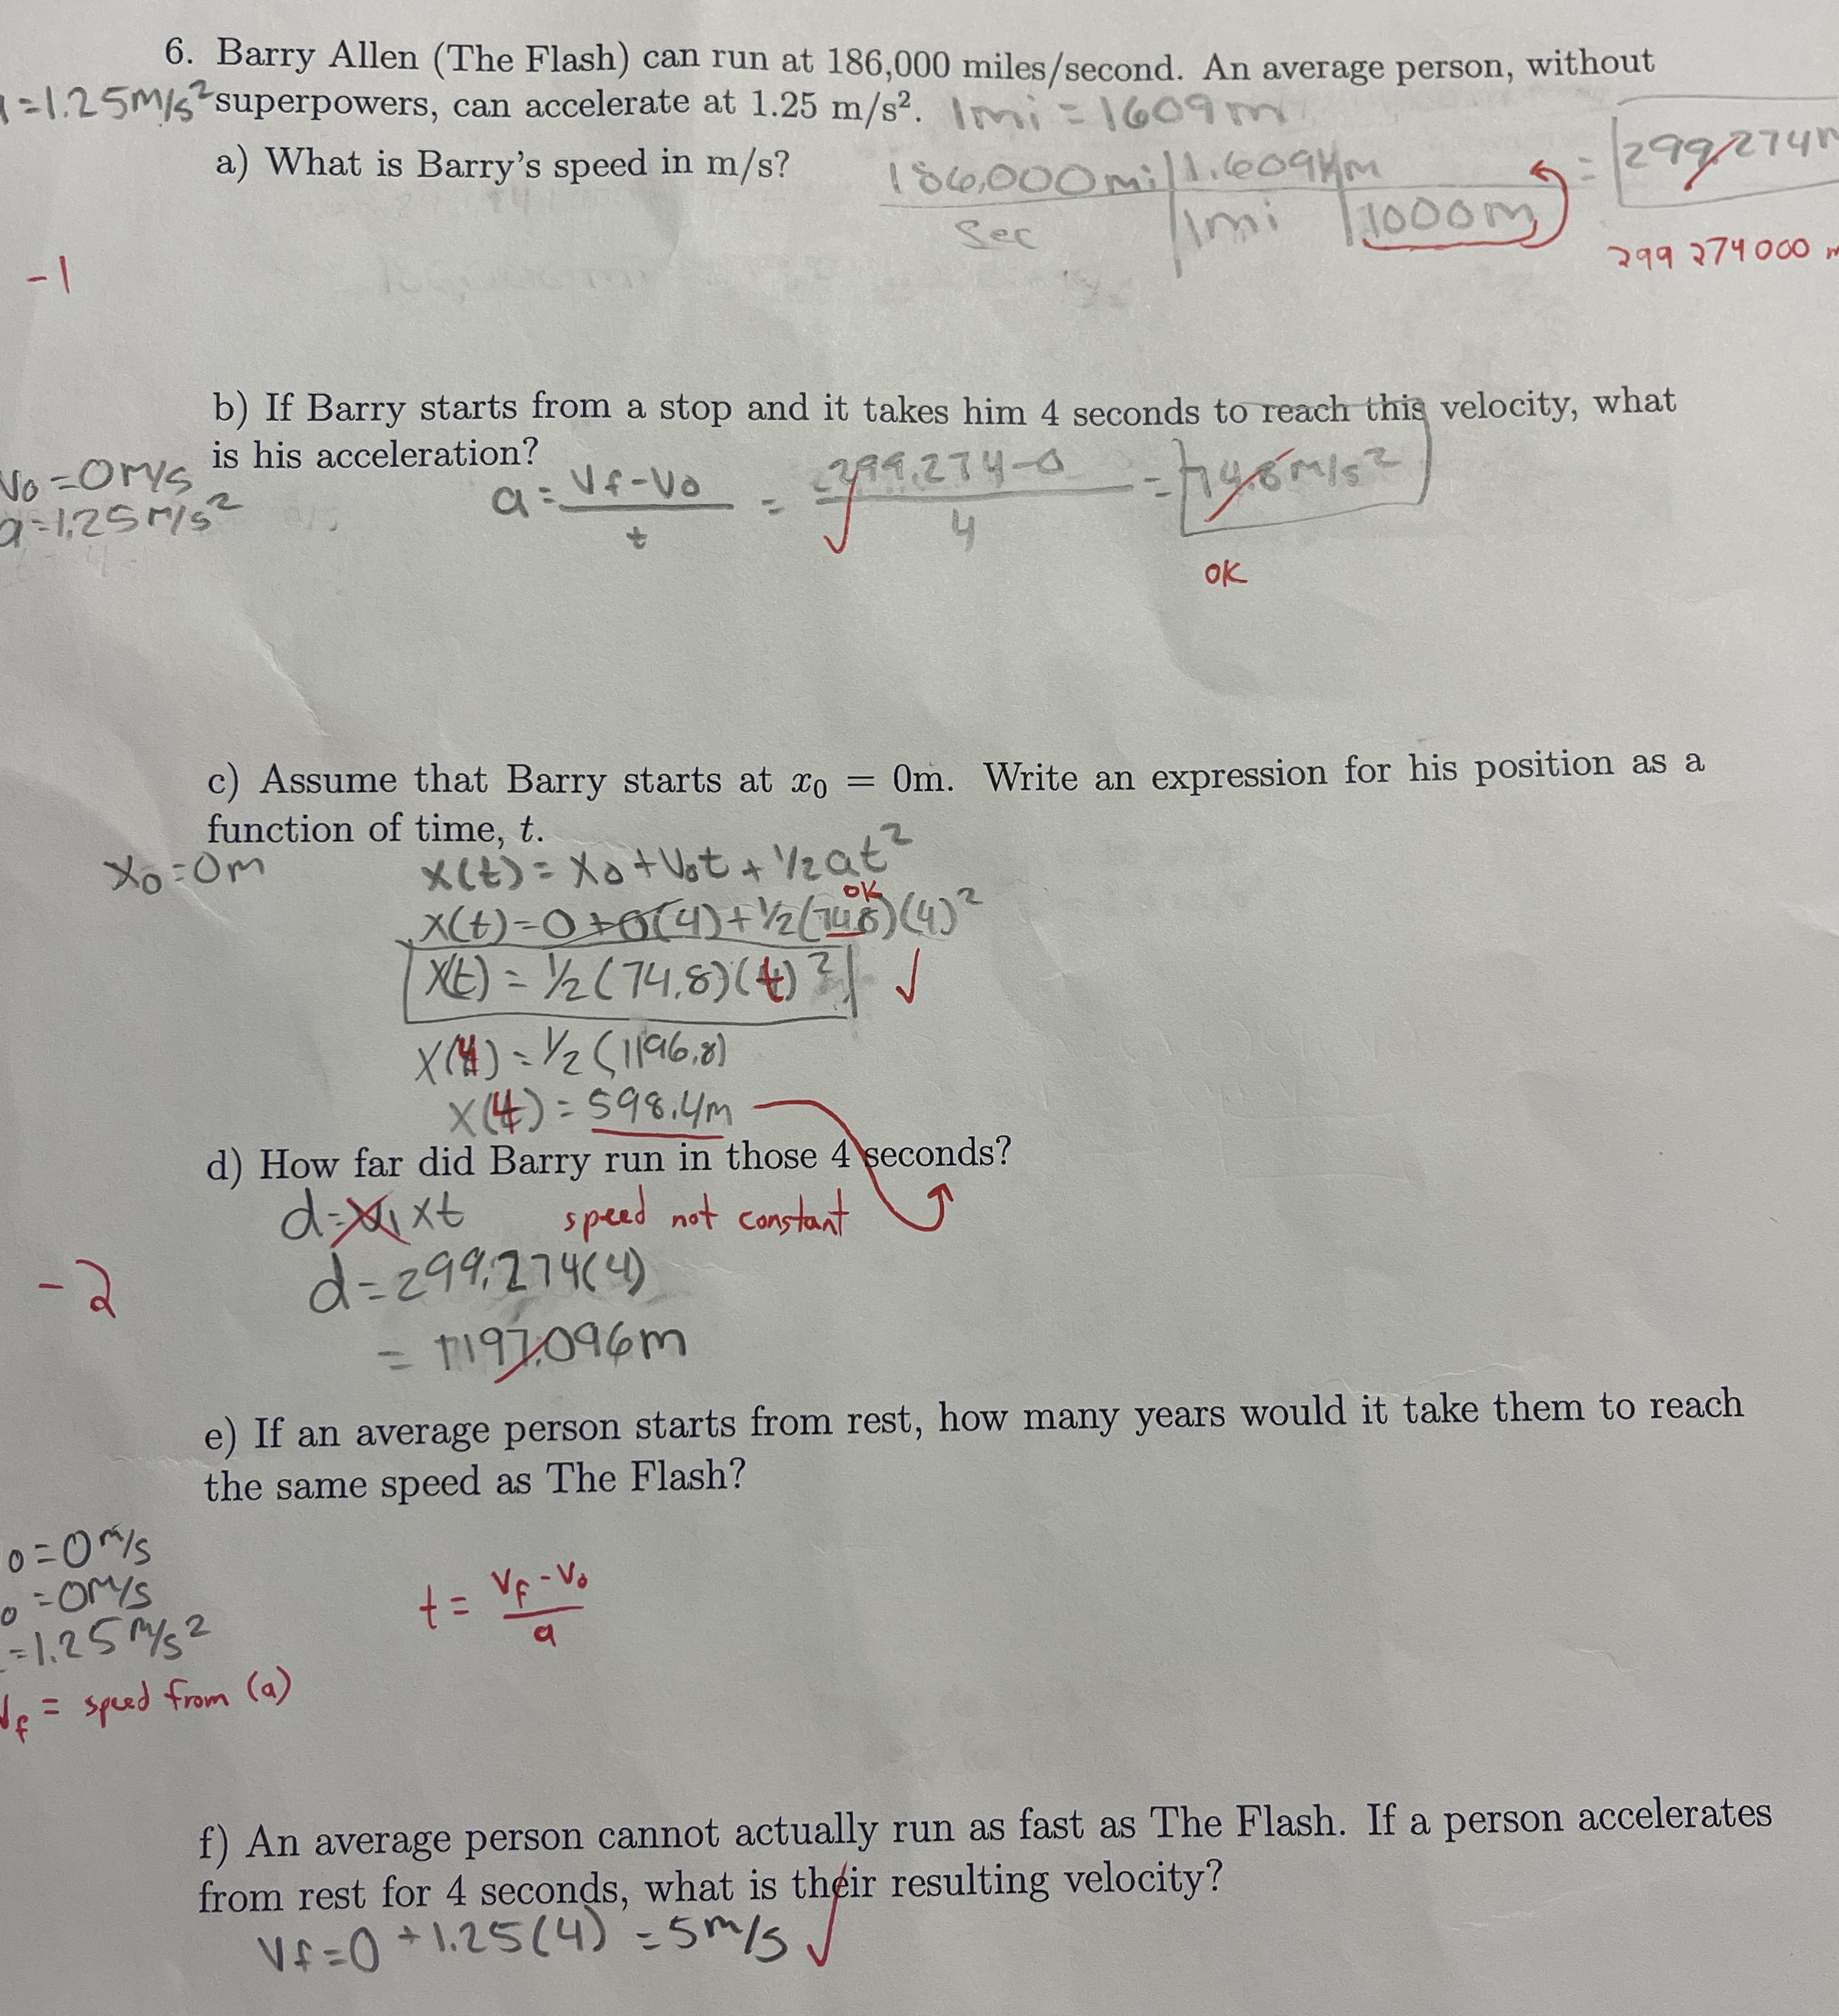 6. Barry Allen (The Flash) can run at 186,000 miles/second. An average person, without
=1.25m/s² superpowers, can accelerate at 1.25 m/s². 1mi = 1609m
a) What is Barry's speed in m/s?
186,000mi | 1.609km = 299.274
sec | 1mi | 1000m
299 274 000
-1
b) If Barry starts from a stop and it takes him 4 seconds to reach this velocity, what
is his acceleration?
V₀=0m/s
a=1.25m/s²
a = Vf-V₀ / t = 299.274-0 / 4 = 74.8m/s²
OK
c) Assume that Barry starts at x₀ = 0m. Write an expression for his position as a
function of time, t.
X₀=0m
x(t) = x₀+V₀t + 1/2at²
OK
x(t)=0+0(4)+1/2(74.8)(4)²
x(t) = 1/2(74.8)(t)² ✓
x(4) = 1/2(1196.8)
x(4) = 598.4m
d) How far did Barry run in those 4 seconds?
d=V₁xt speed not constant
d=299.274(4)
-2
= 1197.096m
e) If an average person starts from rest, how many years would it take them to reach
the same speed as The Flash?
0=0m/s
0=0m/s
=1.25m/s²
t = Vf-V₀ / a
Vf = speed from (a)
f) An average person cannot actually run as fast as The Flash. If a person accelerates
from rest for 4 seconds, what is their resulting velocity?
Vf=0+1.25(4) =5m/s ✓